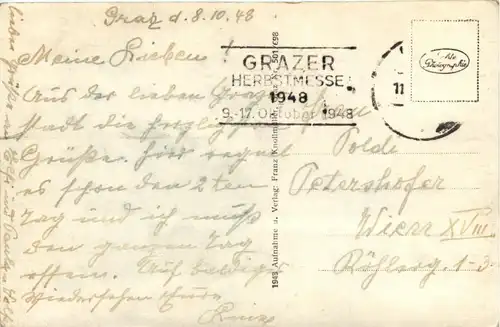 Graz d. 8.10.48
Meine Lieben!
Aus der lieben Grazer
stadt die herzlichsten
Grüße. hier regnet
es schon den 2ten
Tag und ich muß
den ganzen Tag
offen. Auf baldiges
Wiedersehen Eure
GRAZER
HERBSTMESSE
1948
9.-17. Oktober 1948
Echte
Photographie
11
1943 Aufnahme u. Verlag: Franz Knollmüller, Graz 501/698
Frau
Poldi
Petershofer
Wien XVIII.
1-3
liebe Grüße an
und